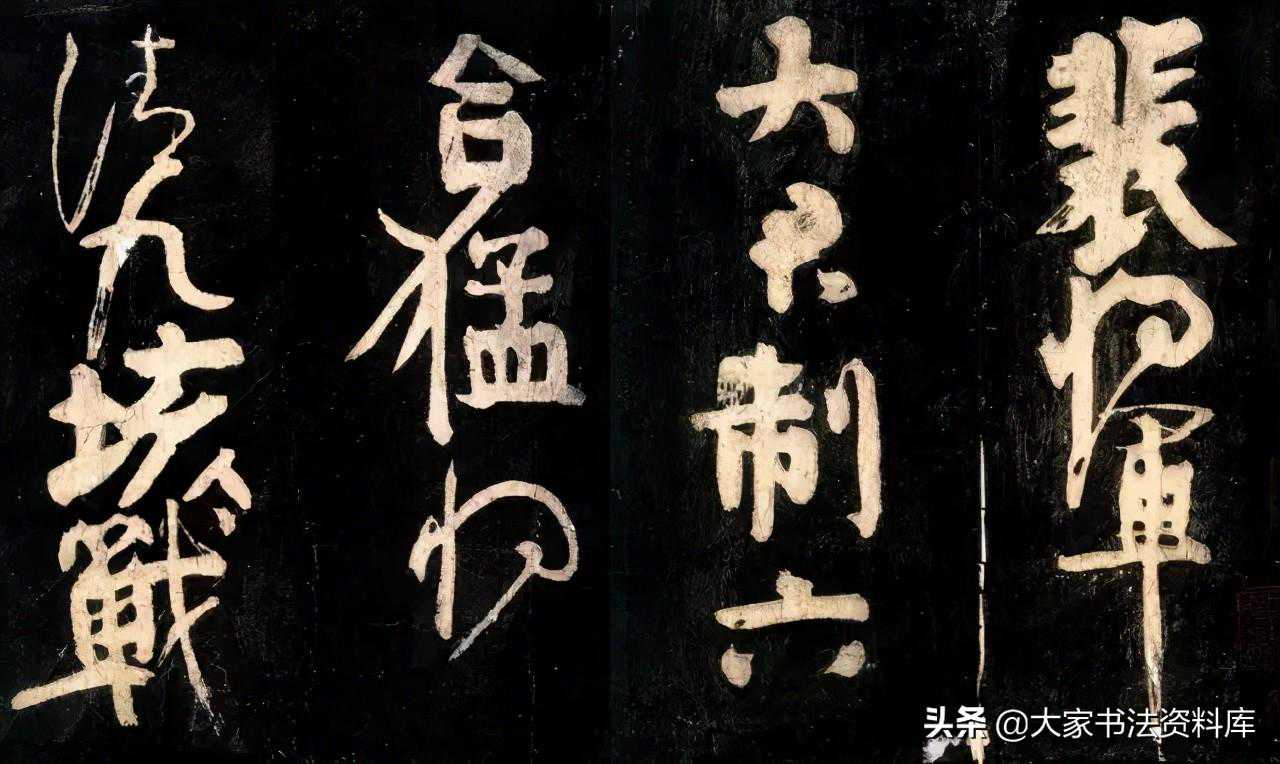 裴將軍
大君制六
合猛將
清九垓戰
头条 @大家书法资料库